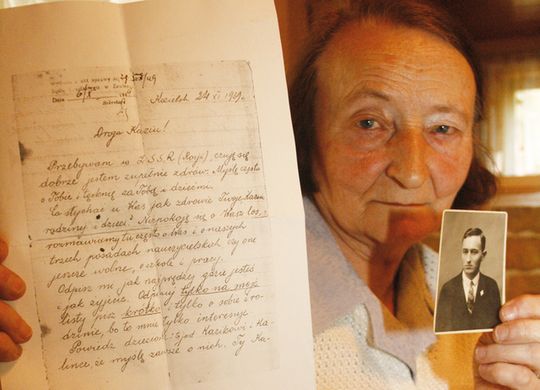 Kozielsk 24 XI 1939.
Droga Kaziu!
Przebywam w Z.S.S.R (Rosji), czuję się
dobrze jestem zupełnie zdrów. Myślę często
o Tobie i tęsknię za Tobą i dziećmi.
Co słychać u Was jak zdrowie Twoje
rodziny i dzieci? Niepokoję się o Was los,
rozmawiamy tu często o Was i o naszych
trzech posadach nauczycielskich czy one
jeszcze wolne, o szkole i pracy.
Odpisz mi jak najprędzej gdzie jesteś
i jak żyjecie. Odpisuj tylko na moje
listy już krótko i tylko o sobie i ro-
dzinie, bo to mnie tylko interesuje
Powiedz dzieciom: tj. Kazikowi Ha-
lince, że myślę zawsze o nich. Ty Ka-